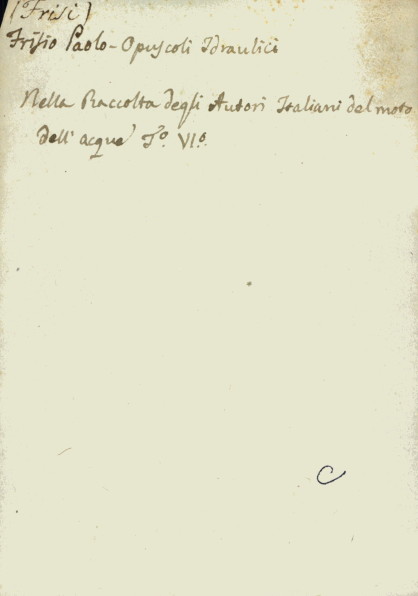 (Frisi)
Frisio Paolo - Opuscoli Idraulici
Nella Raccolta degli Autori Italiani del moto
dell' acque T.º VI.º
C